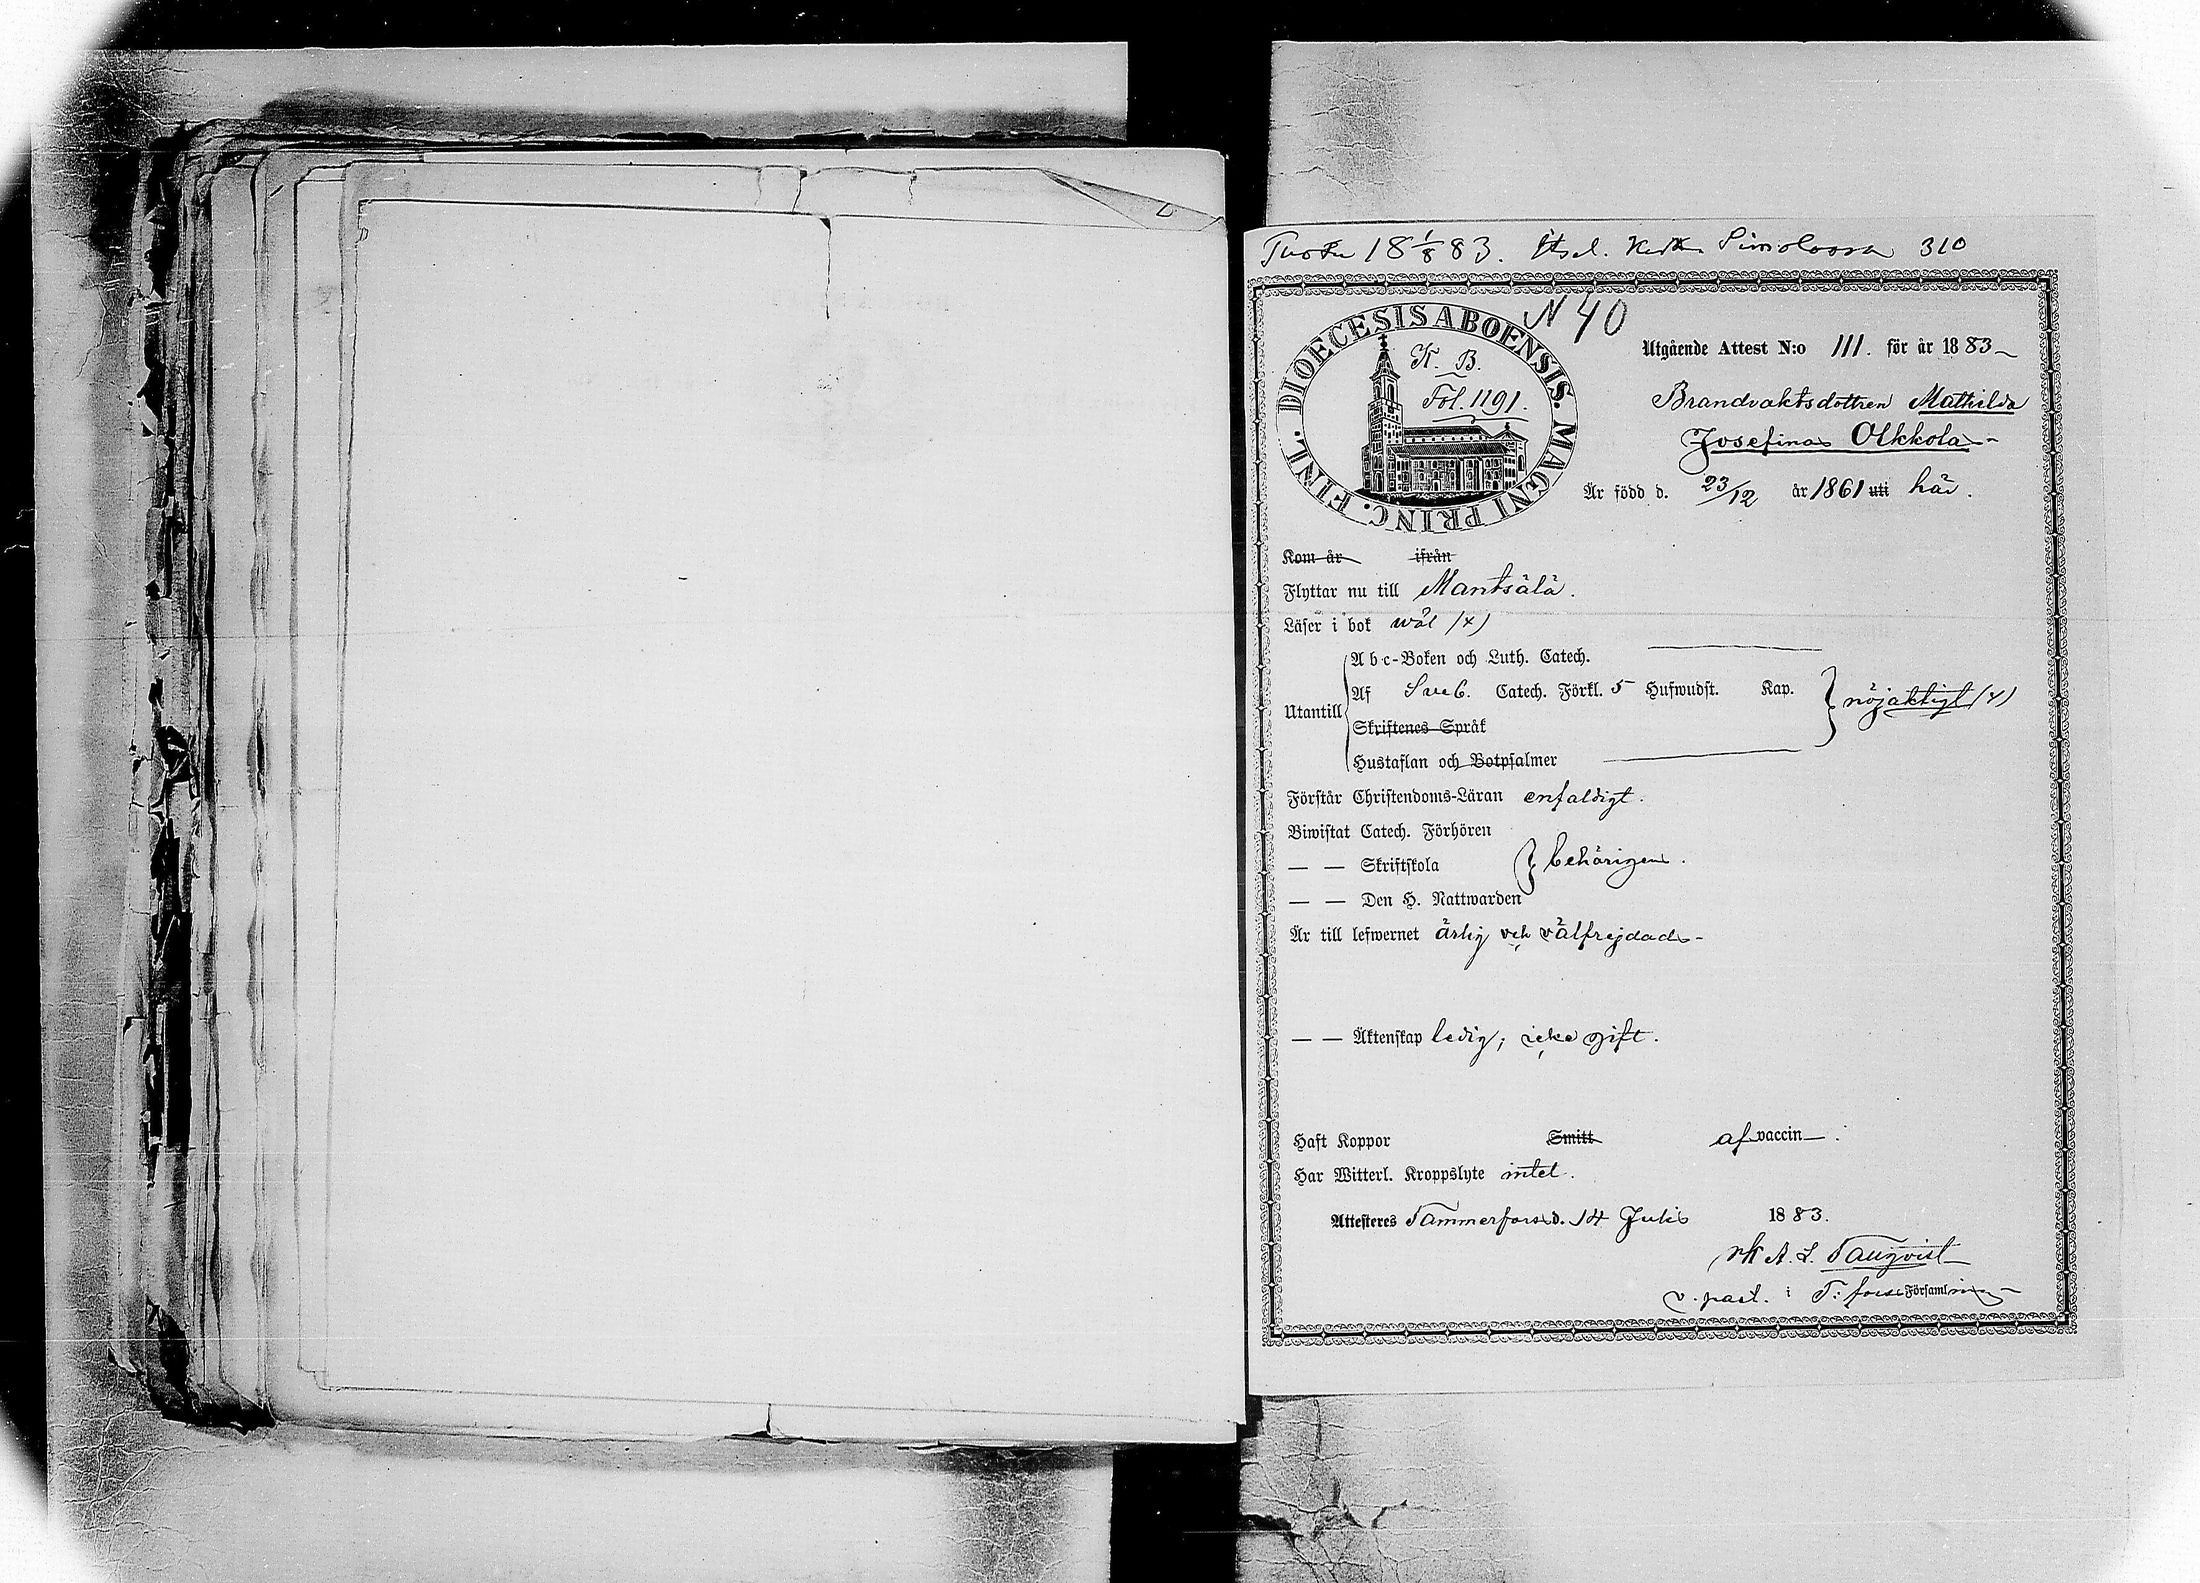 Tuotu 18 1/8 83. Itsel. Simolassa 310
N 40
DIOECESIS ABOENSIS. MAGNI PRINC. FINL.
K. B.
Fol. 1191.
Utgående Attest N:o 111. för år 1883
Brandvaktsdottren Mathilda
Josefina Olkkola
Är född d. 23/12 år 1861 uti här.
Kom år ifrån
Flyttar nu till Mantsälä.
Läser i bok wäl (x)
Utantill
Abc-Boken och Luth. Catech.
Af Sveb. Catech. Förkl. 5 Hufwudst. Kap.
nöjaktigt (x)
Skriftenes Språk
Hustaflan och Botpsalmer
Förstår Christendoms-Läran enfaldigt.
Biwistat Catech. Förhören
— — Skriftskola behörigen.
— — Den H. Nattwarden
Är till lefwernet ärlig och välfrejdad
— — Äktenskap ledig; icke gift.
Haft Koppor Smitt af vaccin
Har Witterl. Kroppslyte intet.
Attesteres Tammerfors d. 14 Juli 1883.
A. L. Tauqvist
v. past. i T:fors Församling